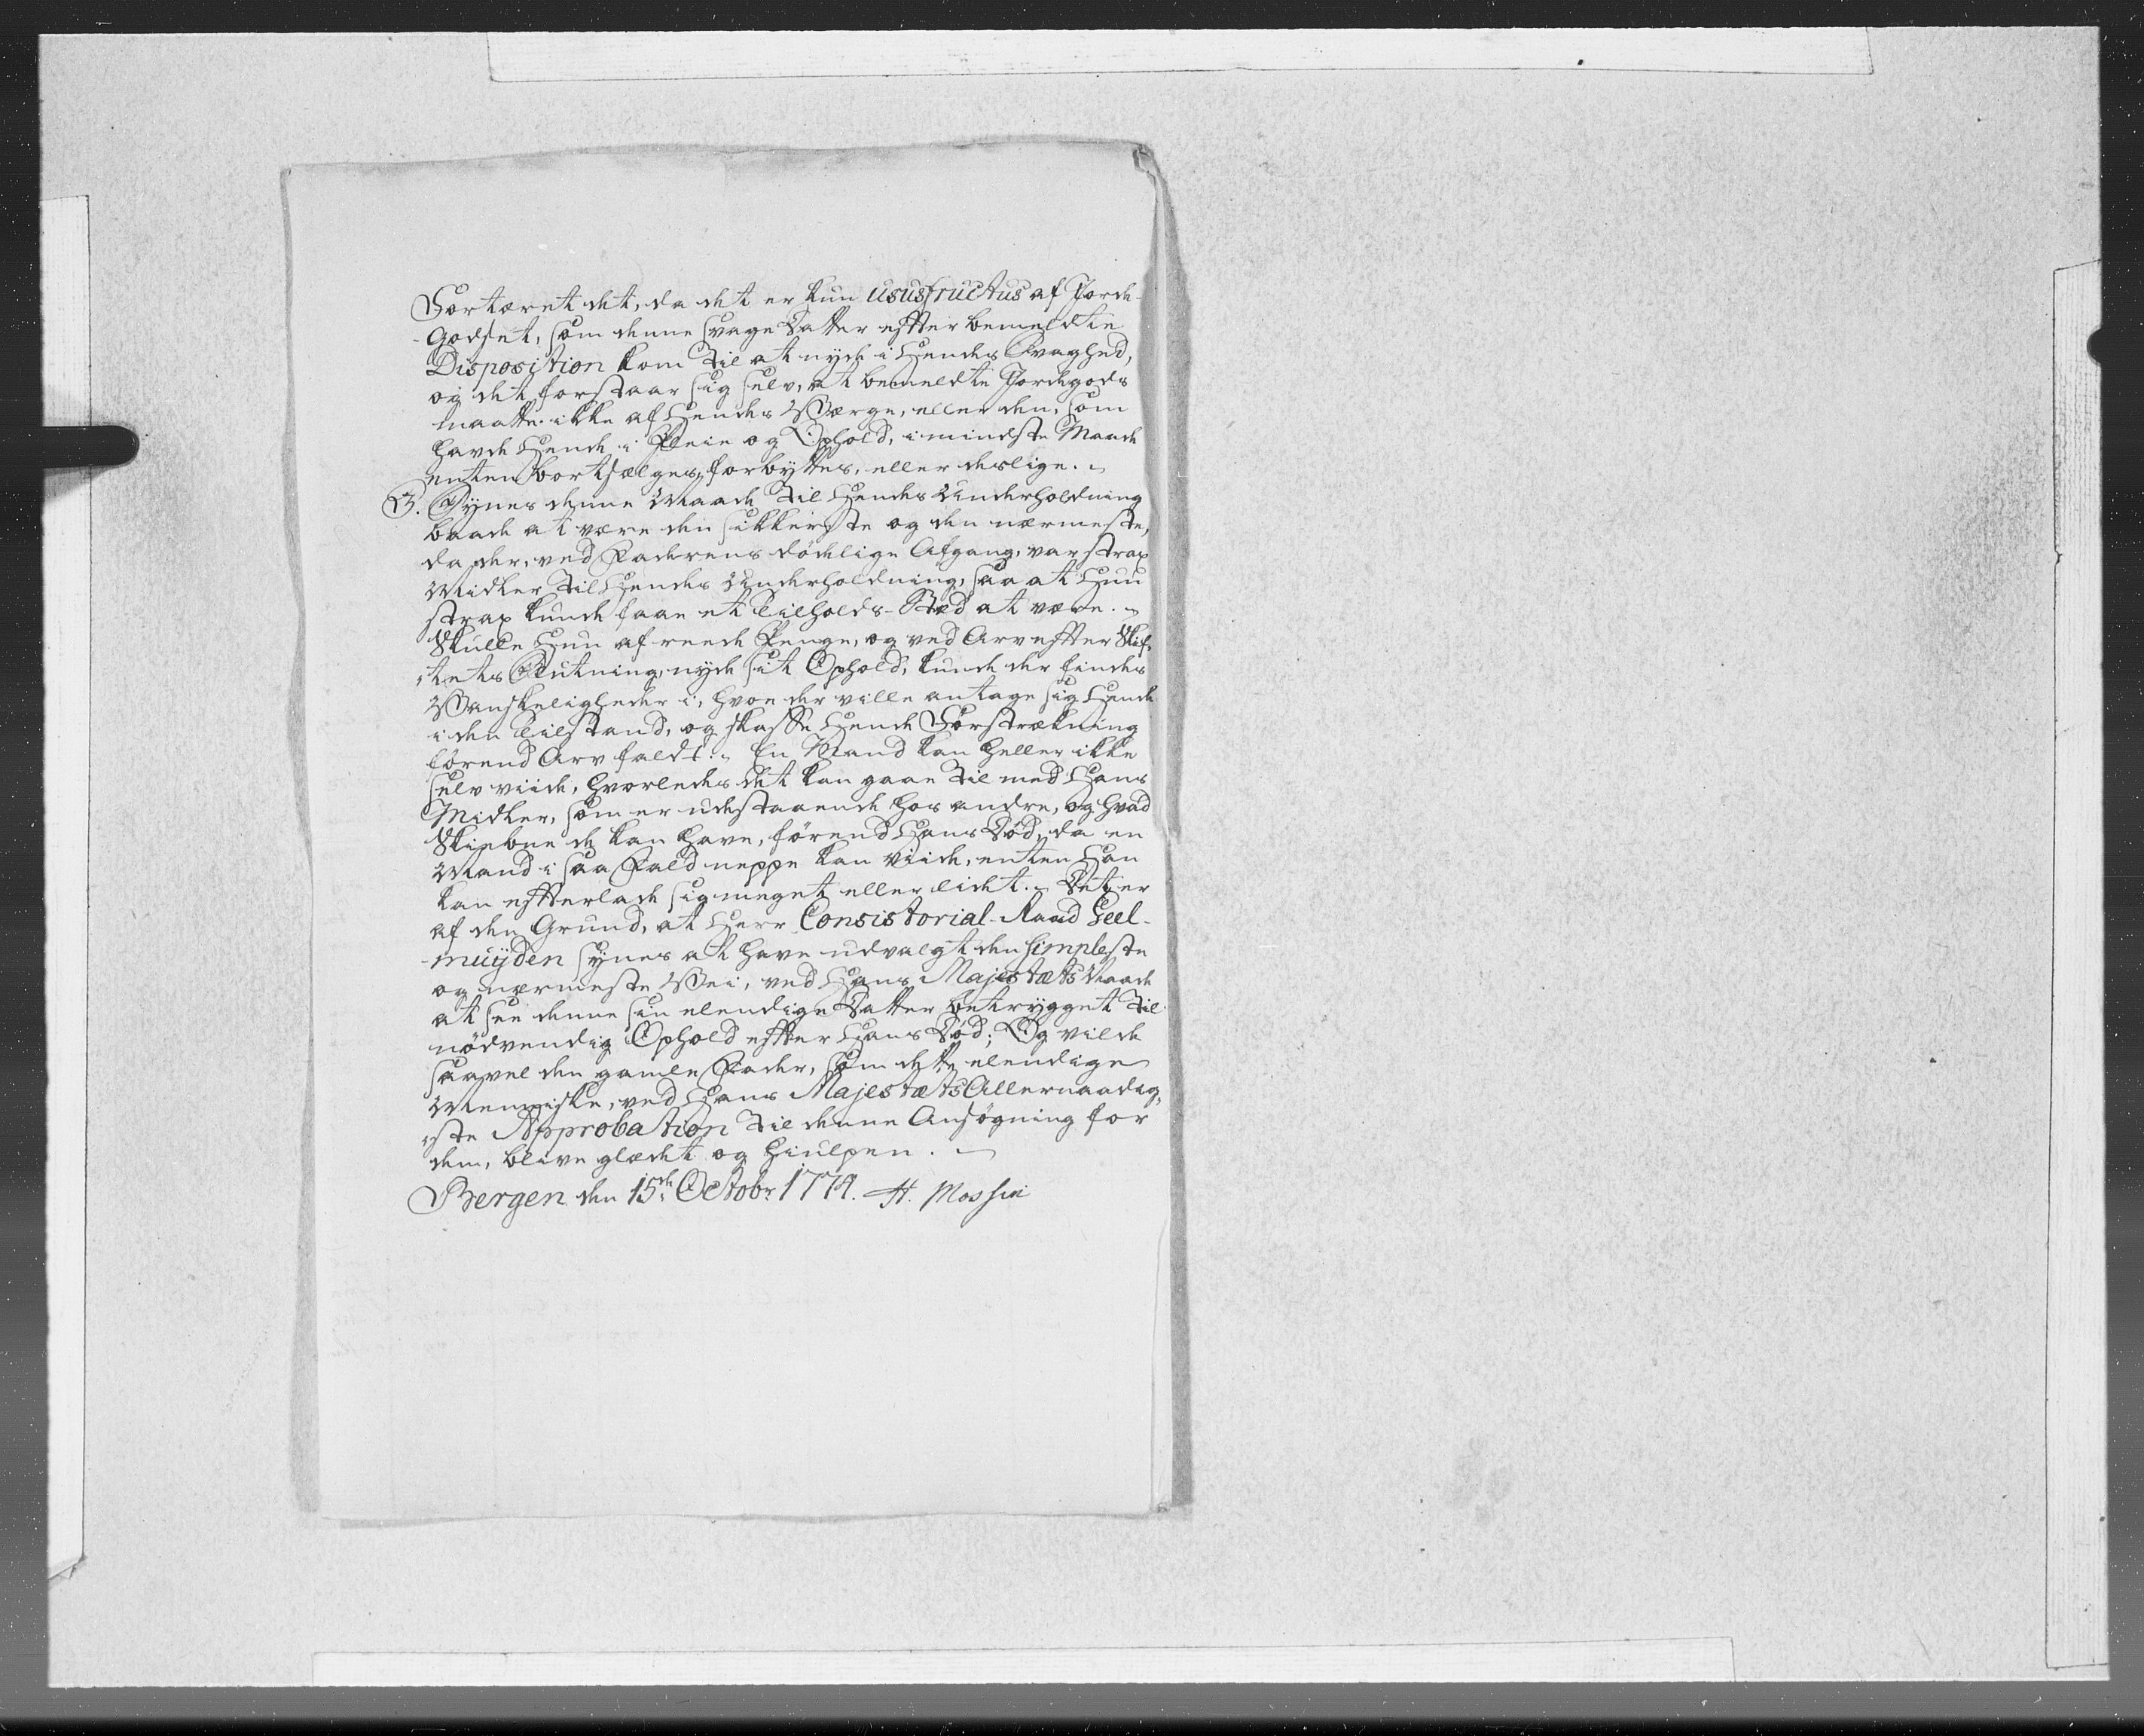 Fortæret det, da det er kun Ususfructus af Jorde-
-Godset, som denne svage Datter efter bemeldte
Disposition kom til at nyde i Hendes Svaghed,
og det forstaar sig selv, at bemeldte Jordegods
maatte ikke af Hendes Værge, eller den, som
havde Hende i Pleie og Ophold, i mindste Maade
enten bortsælges, forbyttes, eller deslige.
3. Synes denne Maade til Hendes Underholdning
baade at være den sikkerste og den nærmeste,
da der, ved Faderens dödelige Afgang, var strax
Midler til Hendes Underholdning, saa at Hun
strax kunde faae et Tilholds-Sted at være.
Skulle Hun af reede Penge, og ved Arv efter Skif-
-tets Slutning, nyde sit Ophold, kunde der findes
Vanskeligheder i, hvoe der ville antage sig Hende
i den Tilstand, og skaffe Hende Forstrækning
förend Arv faldt. En Mand kan heller ikke
selv viide, hvorledes det kan gaae til med Hans
Midler, som er udestaaende hos andre, og hvad
Skiebne de kan have, förend Hans Död, da en
Mand i saa Fald neppe kan viide, enten Han
kan efterlade sig meget eller lidet. Det er
af den Grund, at Herr Consistorial-Raad Geel-
-muyden synes at have udvalgt den simpleste
og nærmeste Vei, ved Hans Majestæts Naade
at see denne sin elendige Datter betrygget til
nödvendig Ophold efter Hans Död; Og vilde
saavel den gamle Fader, som dette elendige
Menniske, ved Hans Majestæts Allernaadig-
-ste Approbation til denne Ansögning for
dem, blive glædet og hiulpen.
Bergen den 15de Octobr 1774. H. Mossin